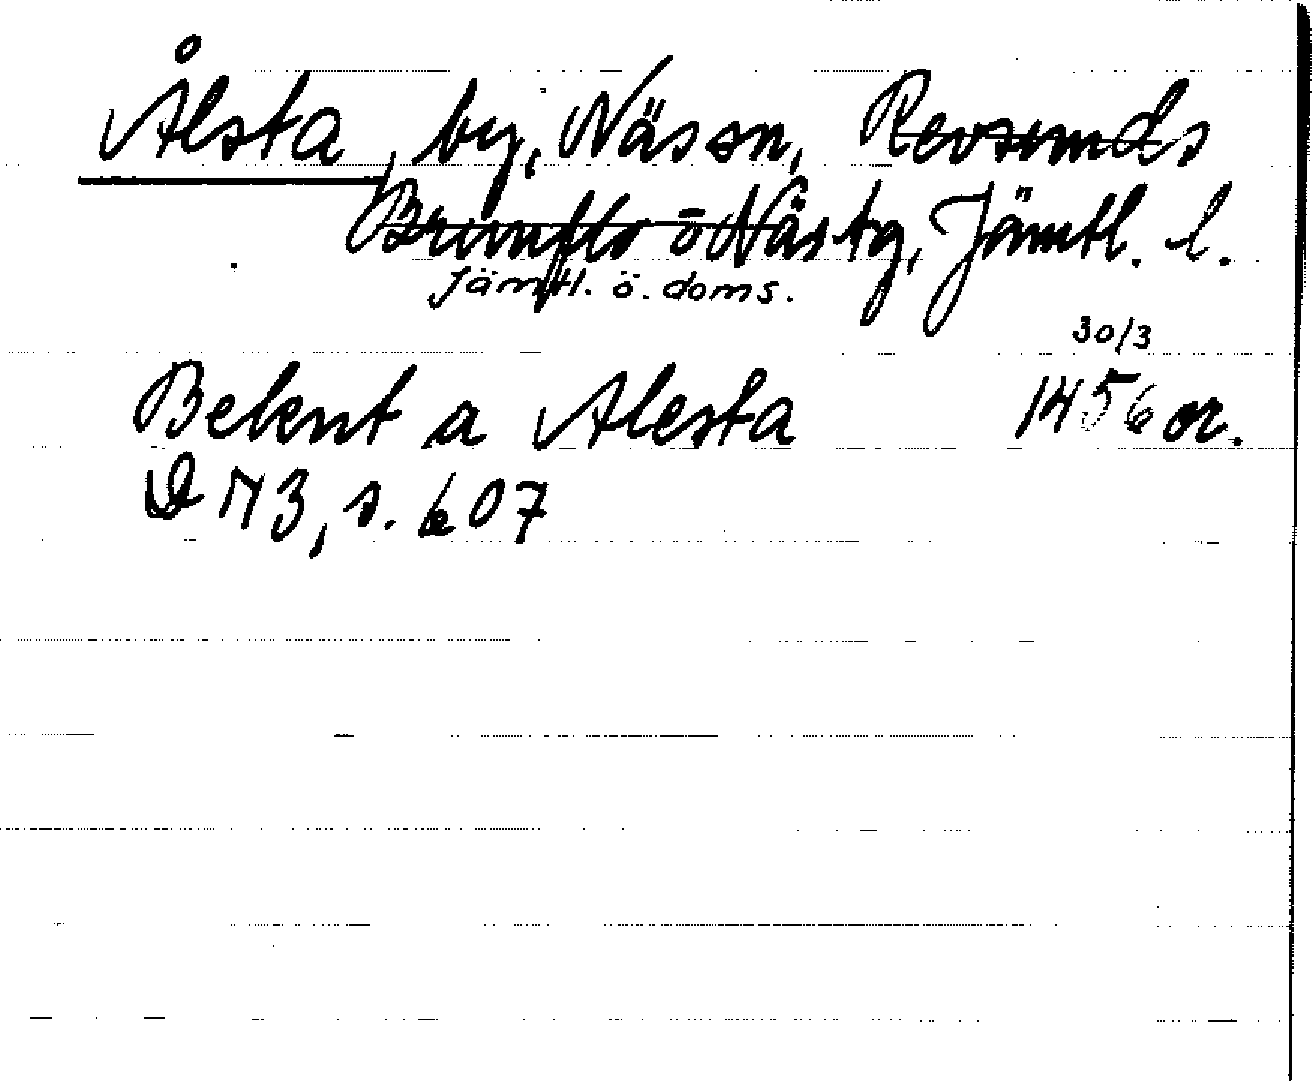 Ålsta, by, Näs sn, Revsunds
Brunflo o Näs tg, Jämtl. l.
Jämtl. ö. doms.
30/3
Belent a Alesta 1456 or.
D M 3, s. 607